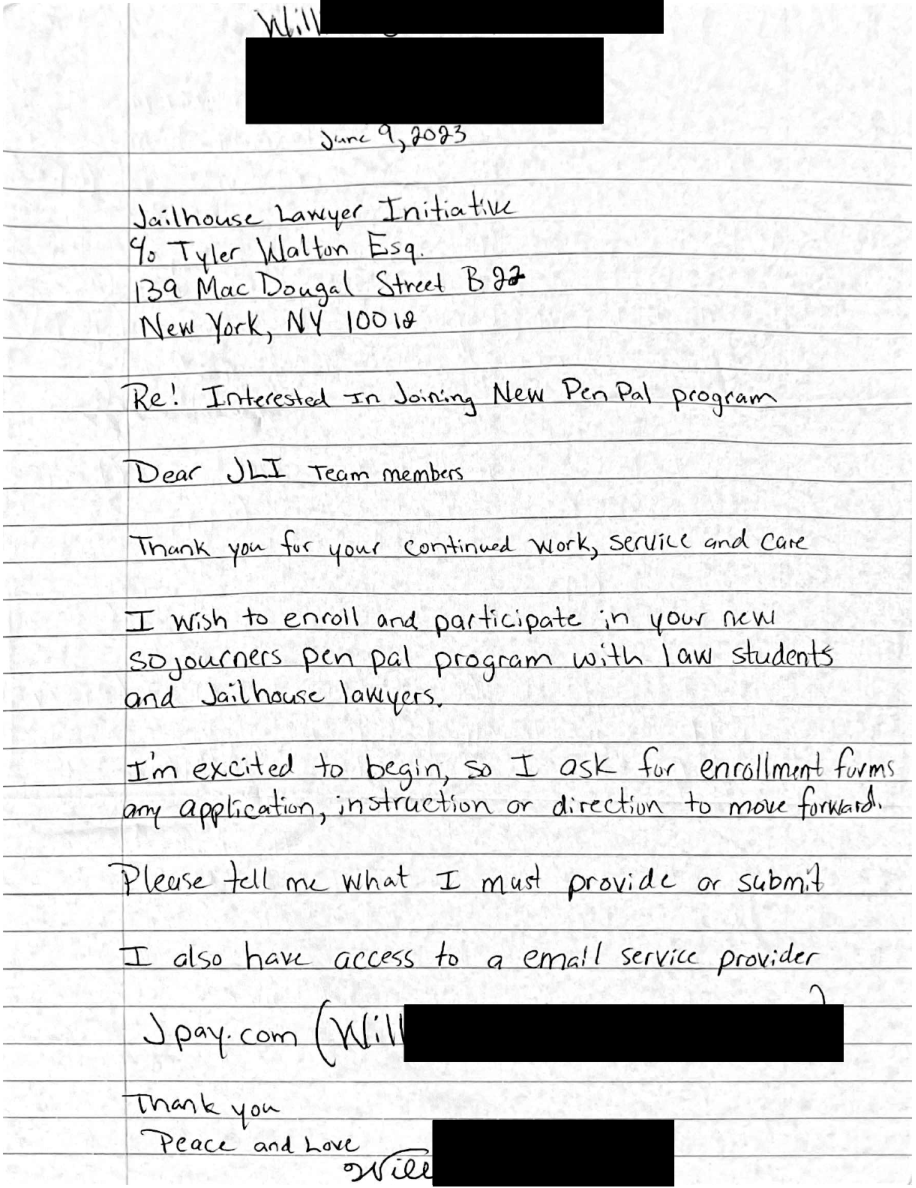 Will
June 9, 2023
Jailhouse Lawyer Initiative
c/o Tyler Walton Esq.
139 Mac Dougal Street B 22
New York, NY 10012
Re! Interested In Joining New Pen Pal program
Dear JLI Team members
Thank you for your continued work, service and care
I wish to enroll and participate in your new
sojourners pen pal program with law students
and Jailhouse lawyers.
I'm excited to begin, so I ask for enrollment forms
any application, instruction or direction to move forward.
Please tell me what I must provide or submit
I also have access to a email service provider
Jpay.com (Will
Thank you
Peace and Love
Will